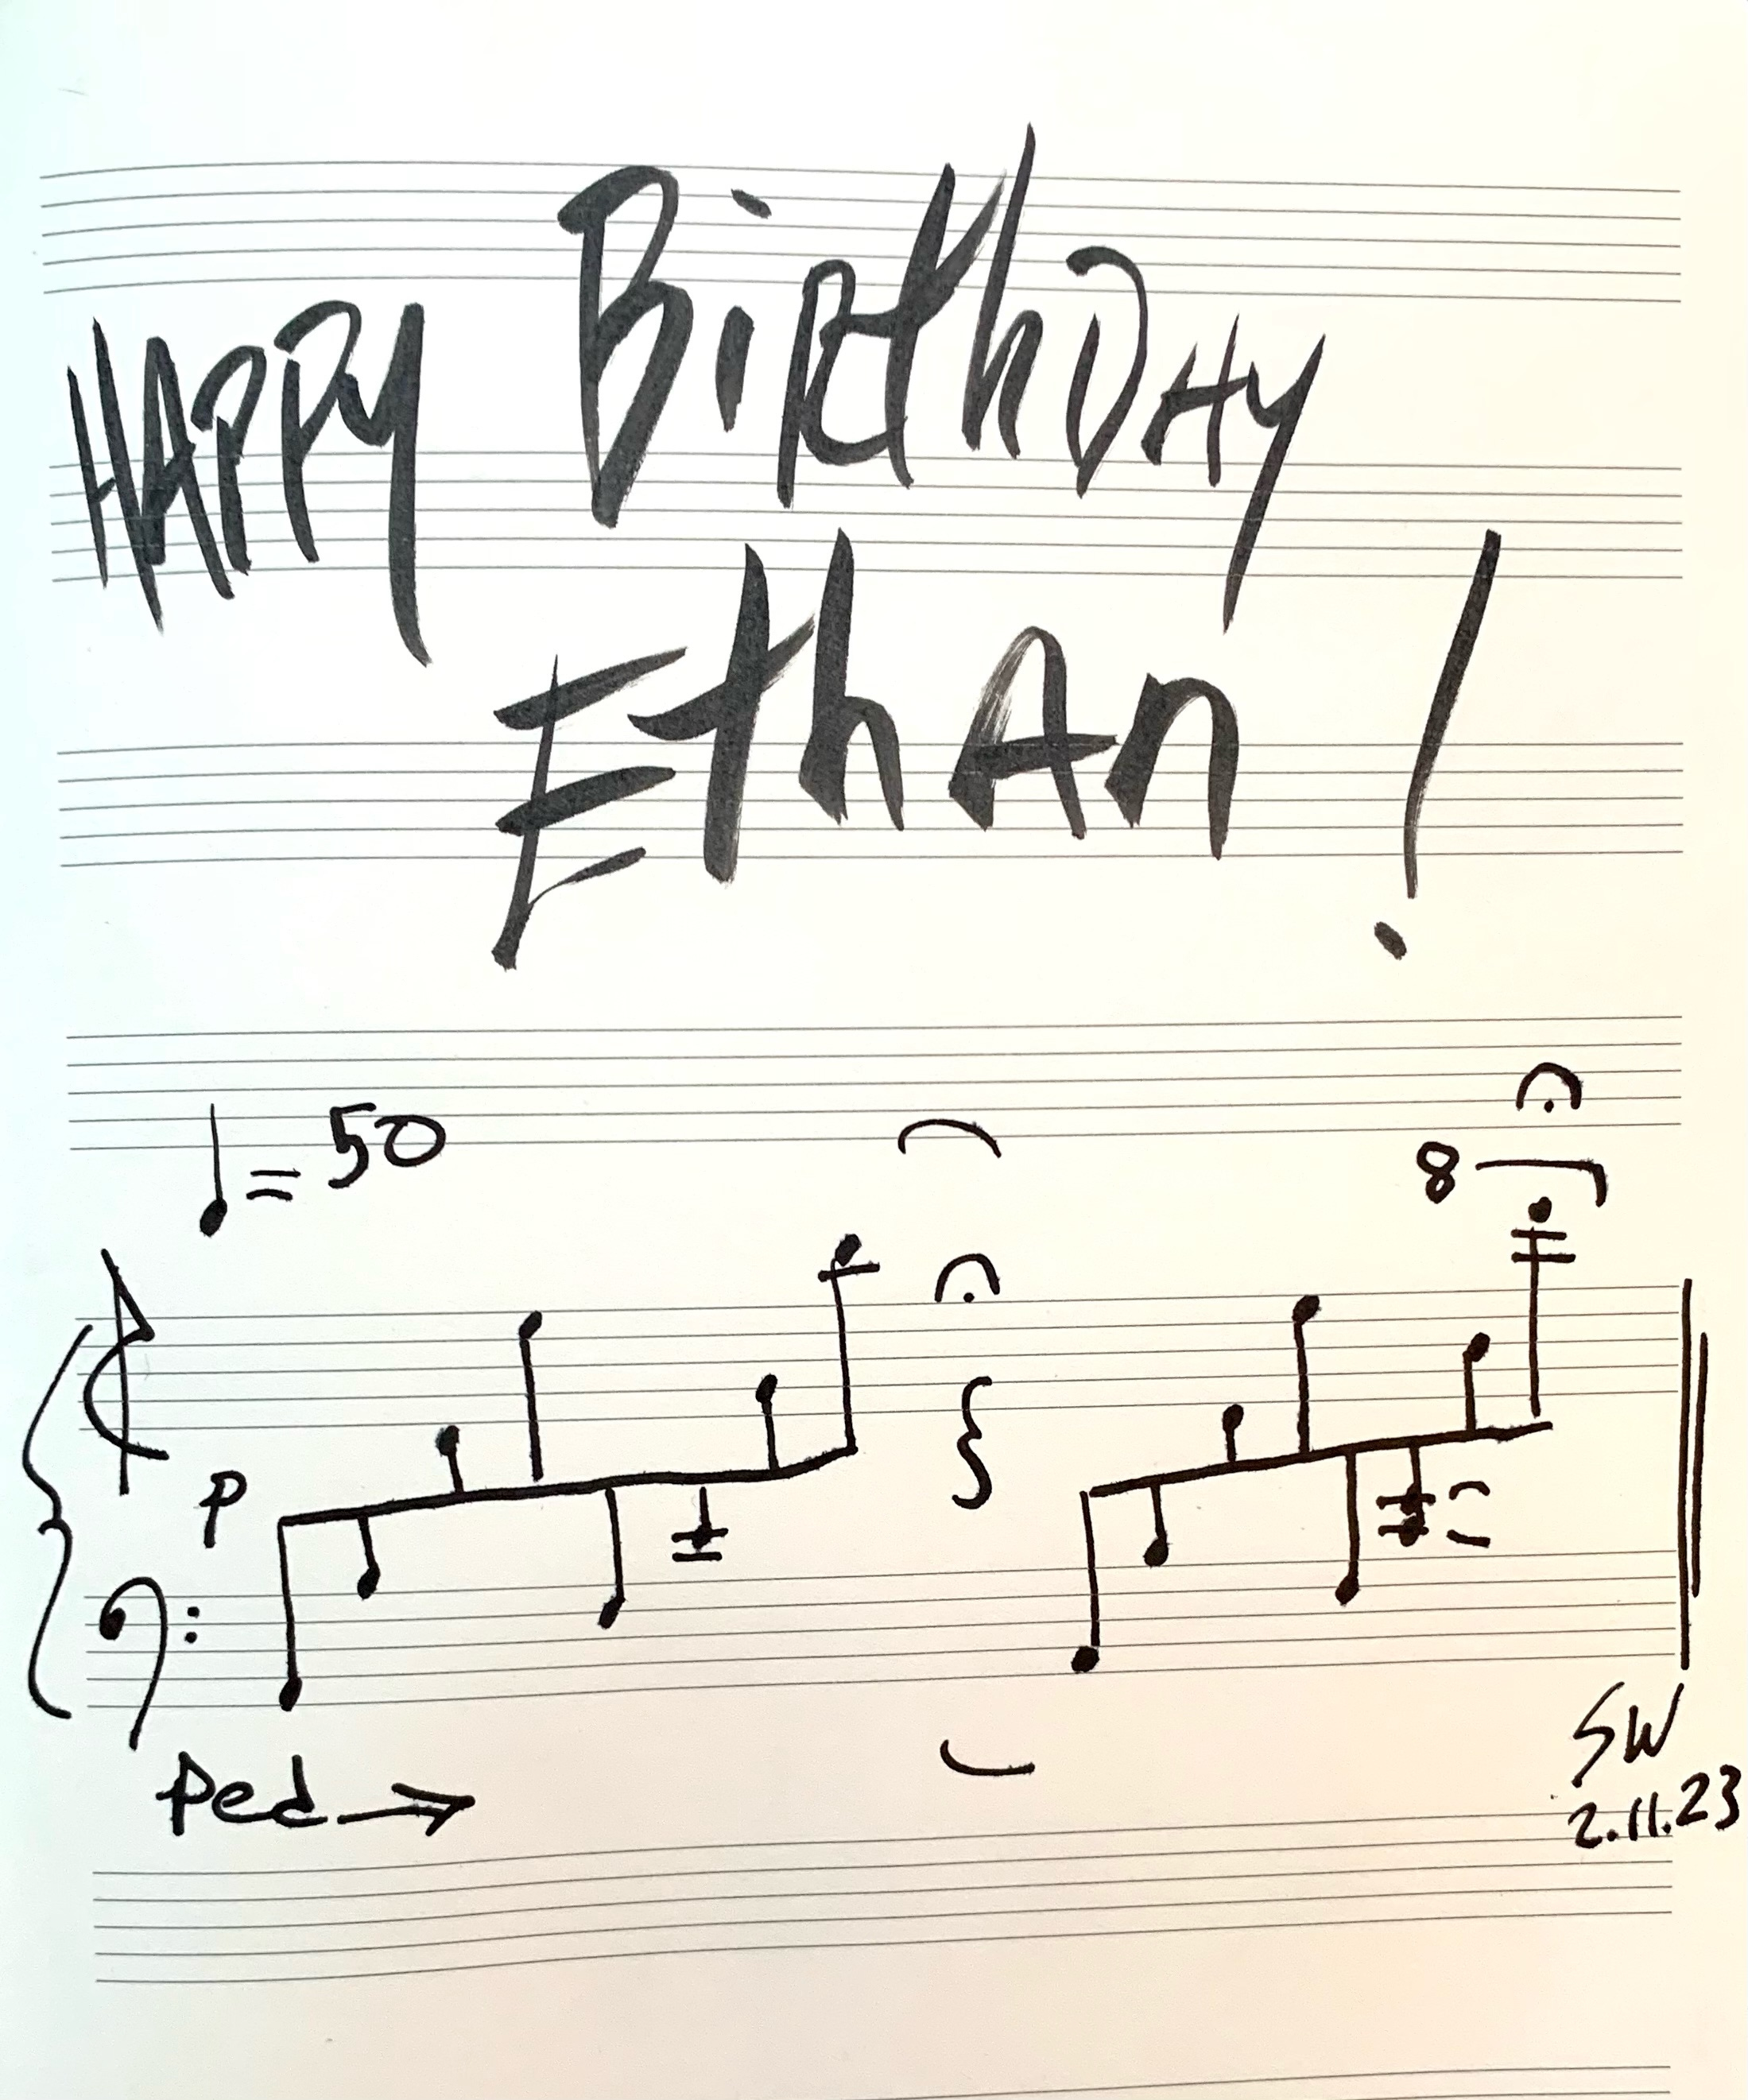 HAPPY BirthDAY
EthAn!
♩= 50
8
P
Ped →
SW
2.11.23